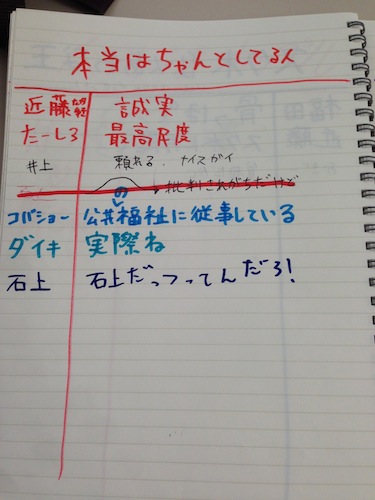 本当はちゃんとしてる人
近藤 誠実
たーしろ 最高尺度
井上 頼れる．ナイスガイ
の 批判されがちだけど
コバショー 公共福祉に従事している
ダイキ 実際ね
石上 石上だっつってんだろ!